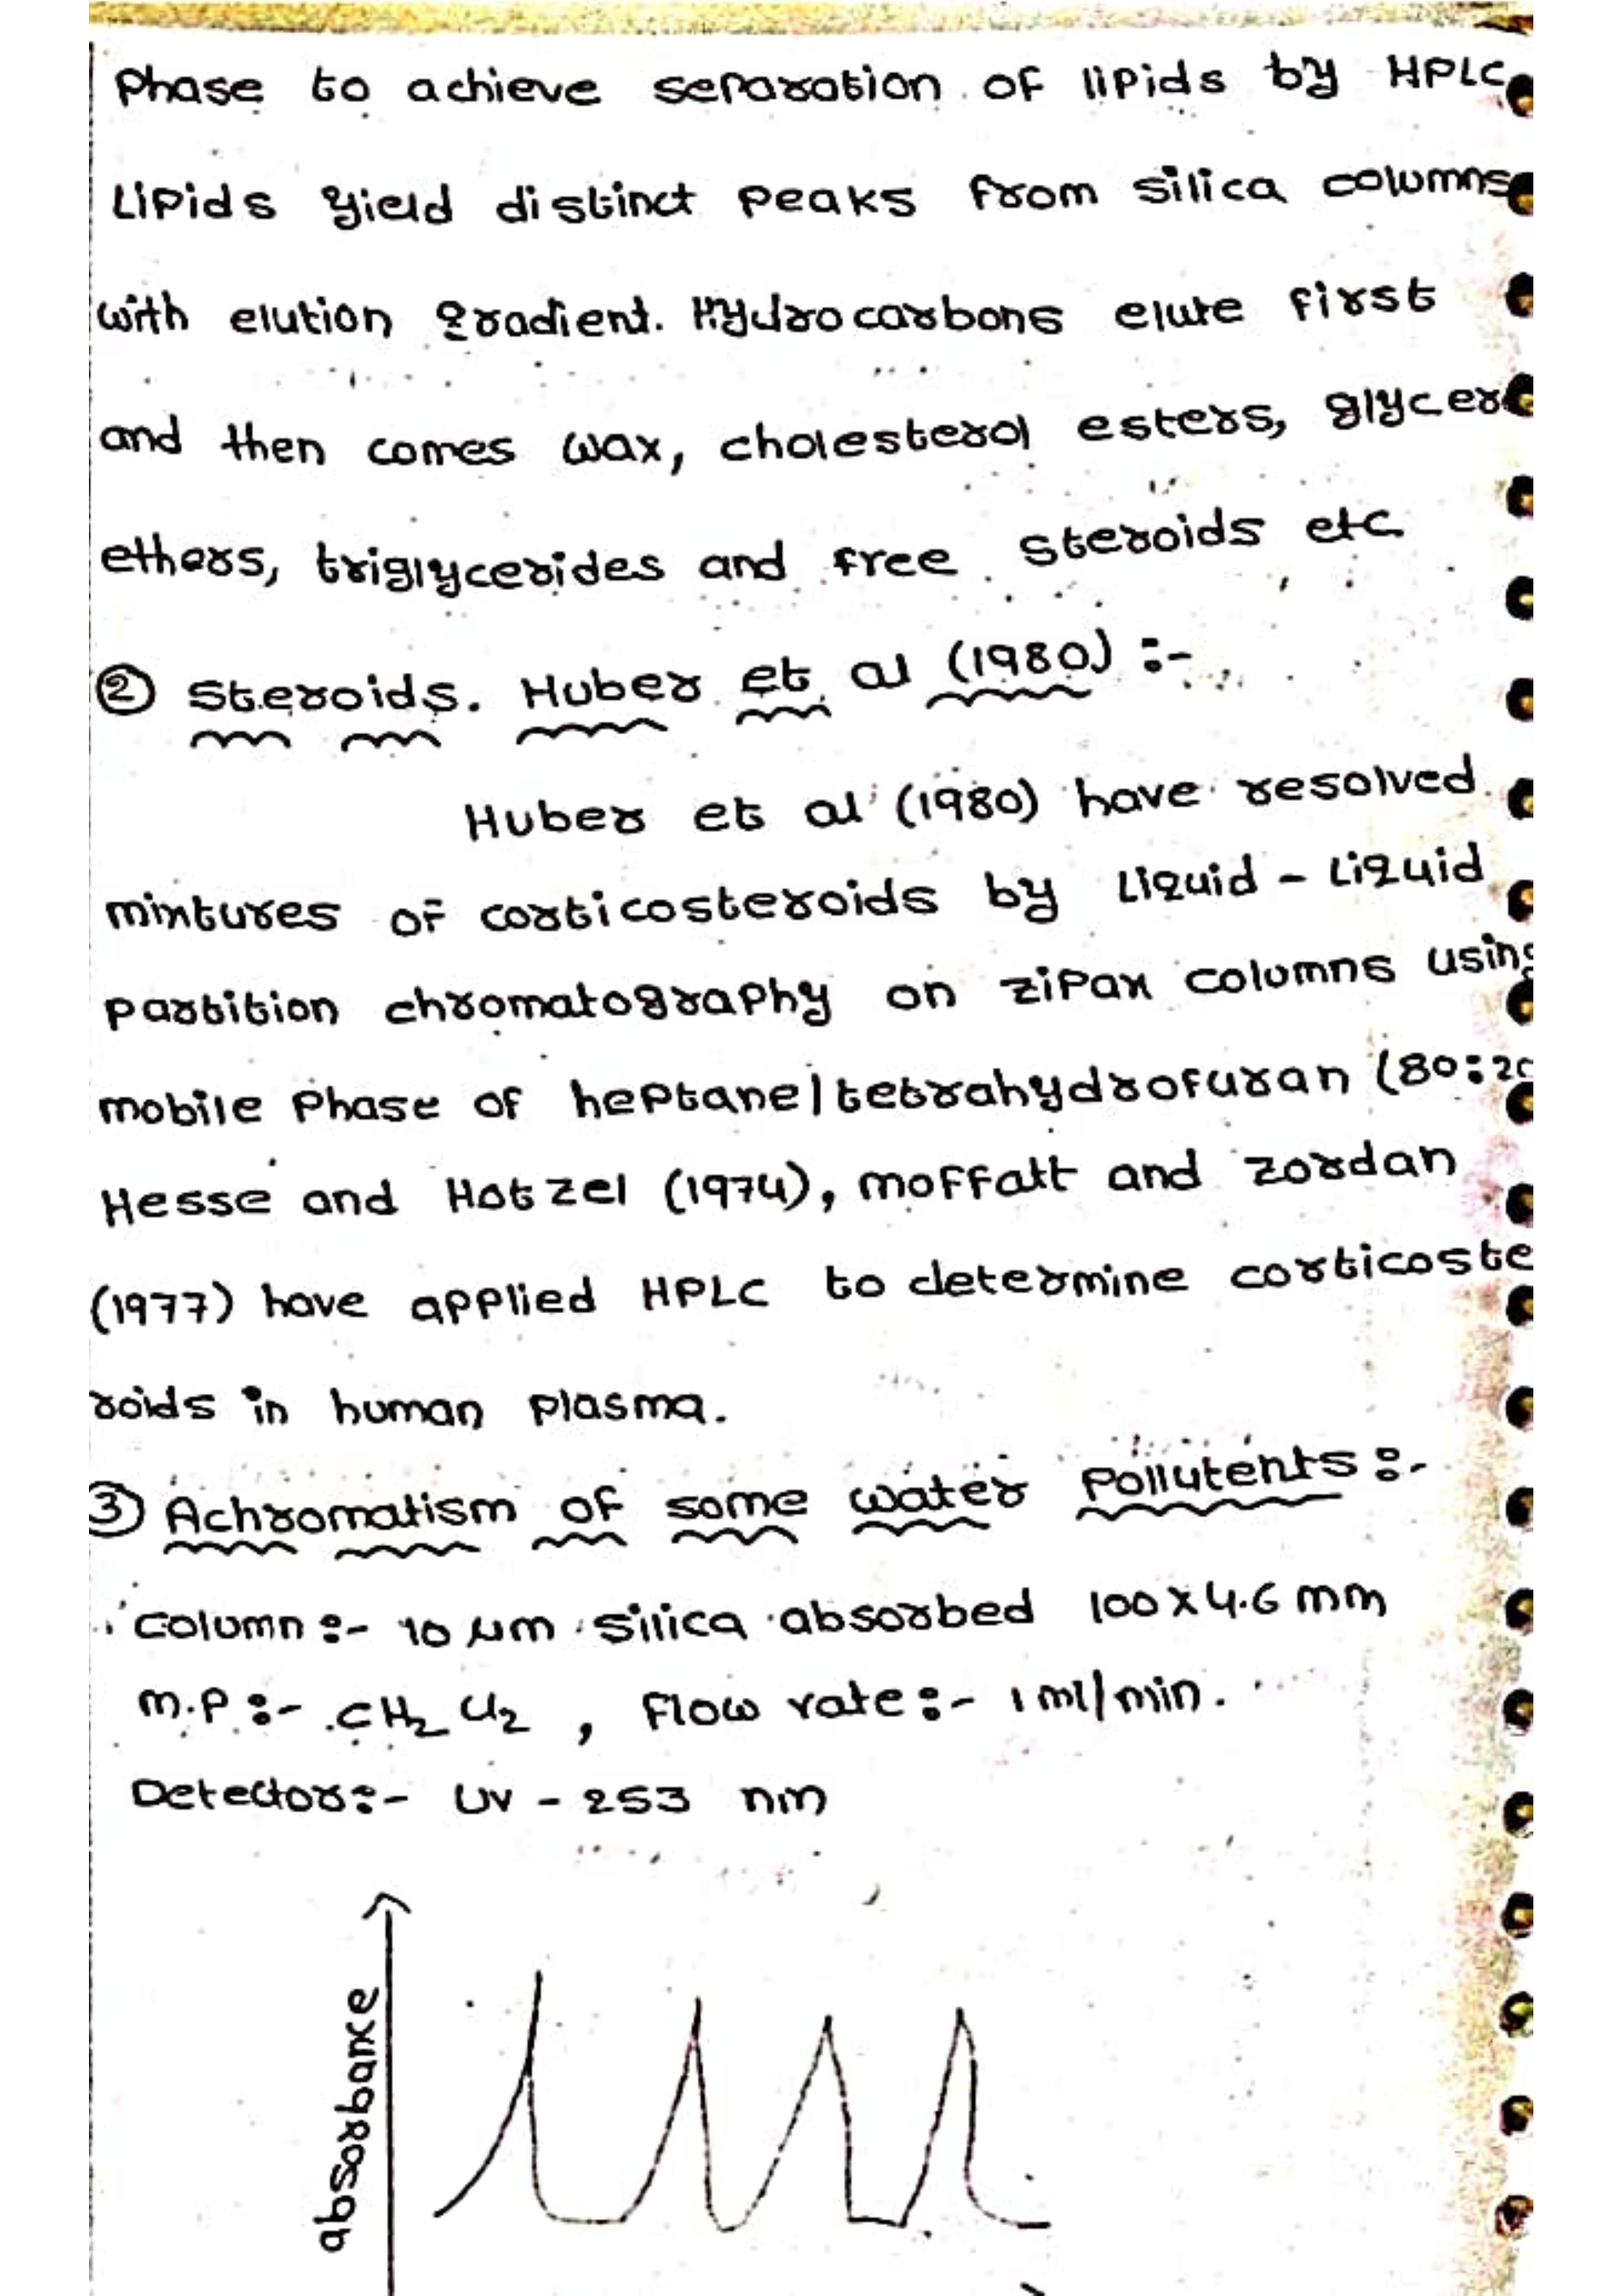 Phase to achieve separation of lipids by HPLC
Lipids yield distinct peaks from silica columns
with elution gradient. Hydrocarbons elute first
and then comes wax, cholesterol esters, glycer
ethers, triglycerides and free steroids etc
② Steroids. Huber et al (1980) :-
Huber et al (1980) have resolved
mixtures of corticosteroids by Liquid - Liquid
partition chromatography on zipax columns using
mobile phase of heptane/tetrahydrofuran (80:20
Hesse and Hotzel (1974), moffatt and zordan
(1977) have applied HPLC to determine corticoste
roids in human plasma.
③ Achromatism of some water Pollutents :-
column :- 10 μm silica absorbed 100 x 4.6 mm
M.P :- CH2 Cl2 , Flow rate :- 1 ml/min.
Detector :- UV - 253 nm
absorbance